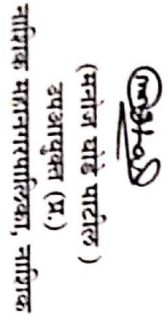 (मनोज घोडे पाटील )
उपआयुक्त (प्र.)
नाशिक महानगरपालिका, नाशिक